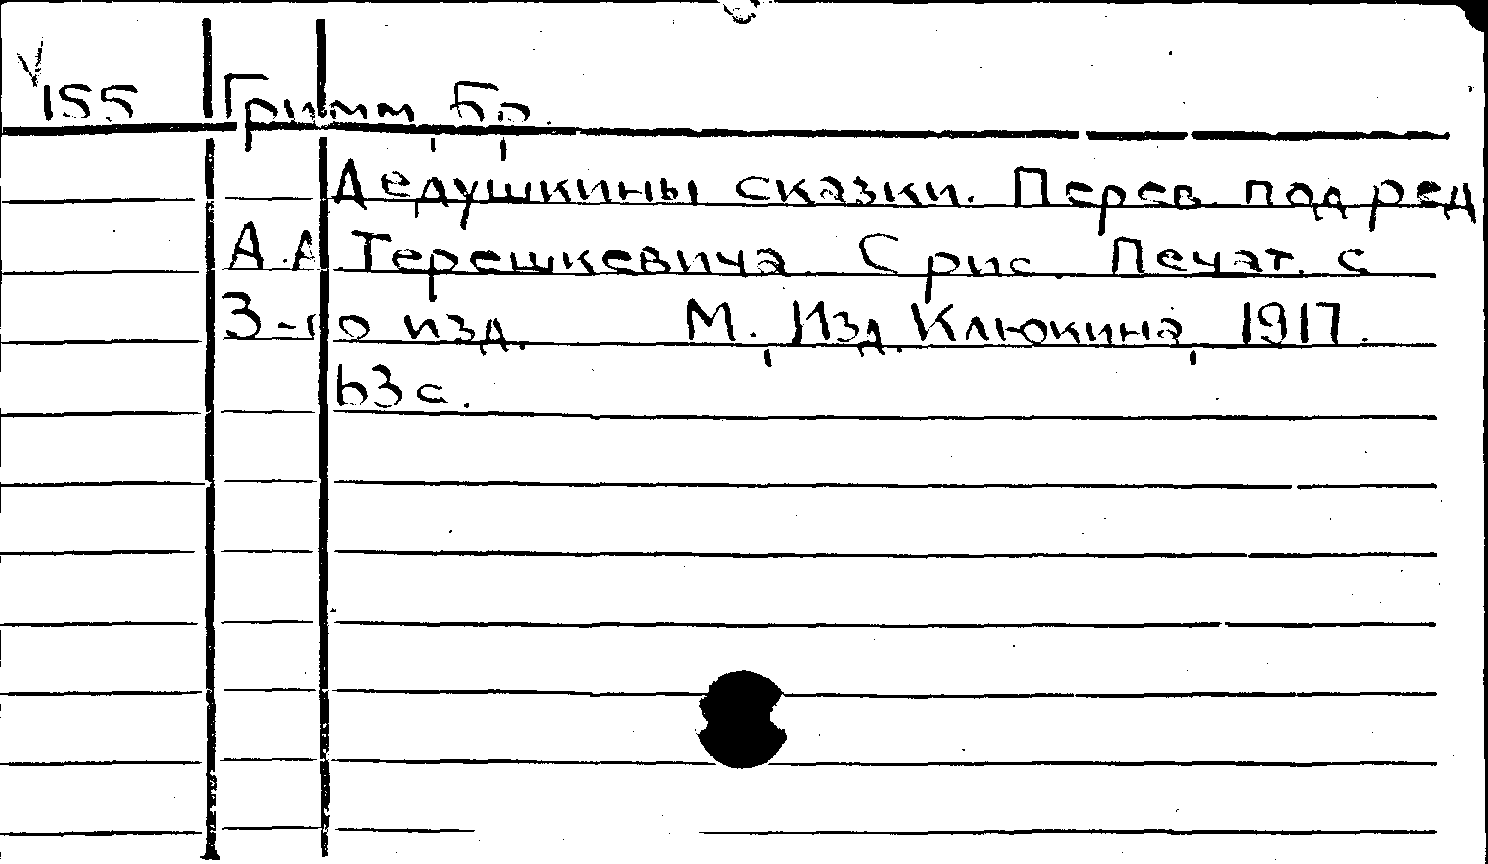 V
155 Гримм, Бр.
Дедушкины сказки. Перев. под ред
А.А Терешкевича С рис. Печат. с
3-го изд. М., Изд. Клюкина, 1917.
63 с.